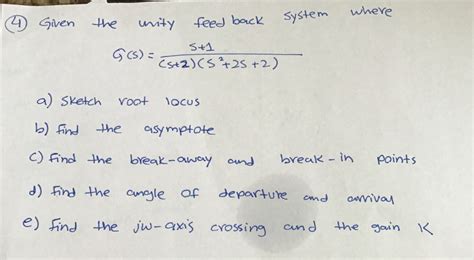 ④ Given the unity feed back system where
G(s) = s+1
(s+2)(s²+2s+2)
a) Sketch root locus
b) find the asymptote
c) Find the break-away and break-in points
d) find the angle of departure and arrival
e) find the jw-axis crossing and the gain K